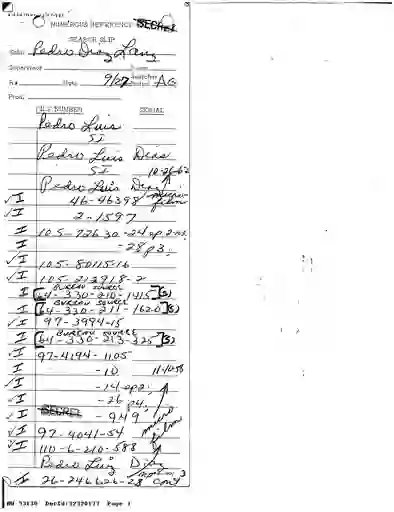 NUMEROUS REFERENCE SECRET
SEARCH SLIP
Subj: Pedro Diaz Lanz
Supervisor Room
R# Date 9/27 Searcher Initial AG
Prod.
FILE NUMBER SERIAL
Pedro Luis
SI
Pedro Luis Dias
SI 10-26-62
Pedro Luis Diaz
I 46-46398 micro-film
I 2-1597
I 105-72630-24 ep. 2
I -28 p3.
I 105-80115-16
I 105-213918-2
BUREAU SOURCE
I [64-330-210-1415](S)
BUREAU SOURCE
I [64-330-211-1620](S)
I 97-3994-15
BUREAU SOURCE
I [64-330-213-325](S)
I 97-4194-1105
I -10 11-10-58
I -14 ep2,
I -26 p4,
SECRET -949
I 97-4041-54 micro film
I 110-6-210-588
Pedro Luiz Diaz
I 26-246626-28 cont
DocId:32320177 Page 1